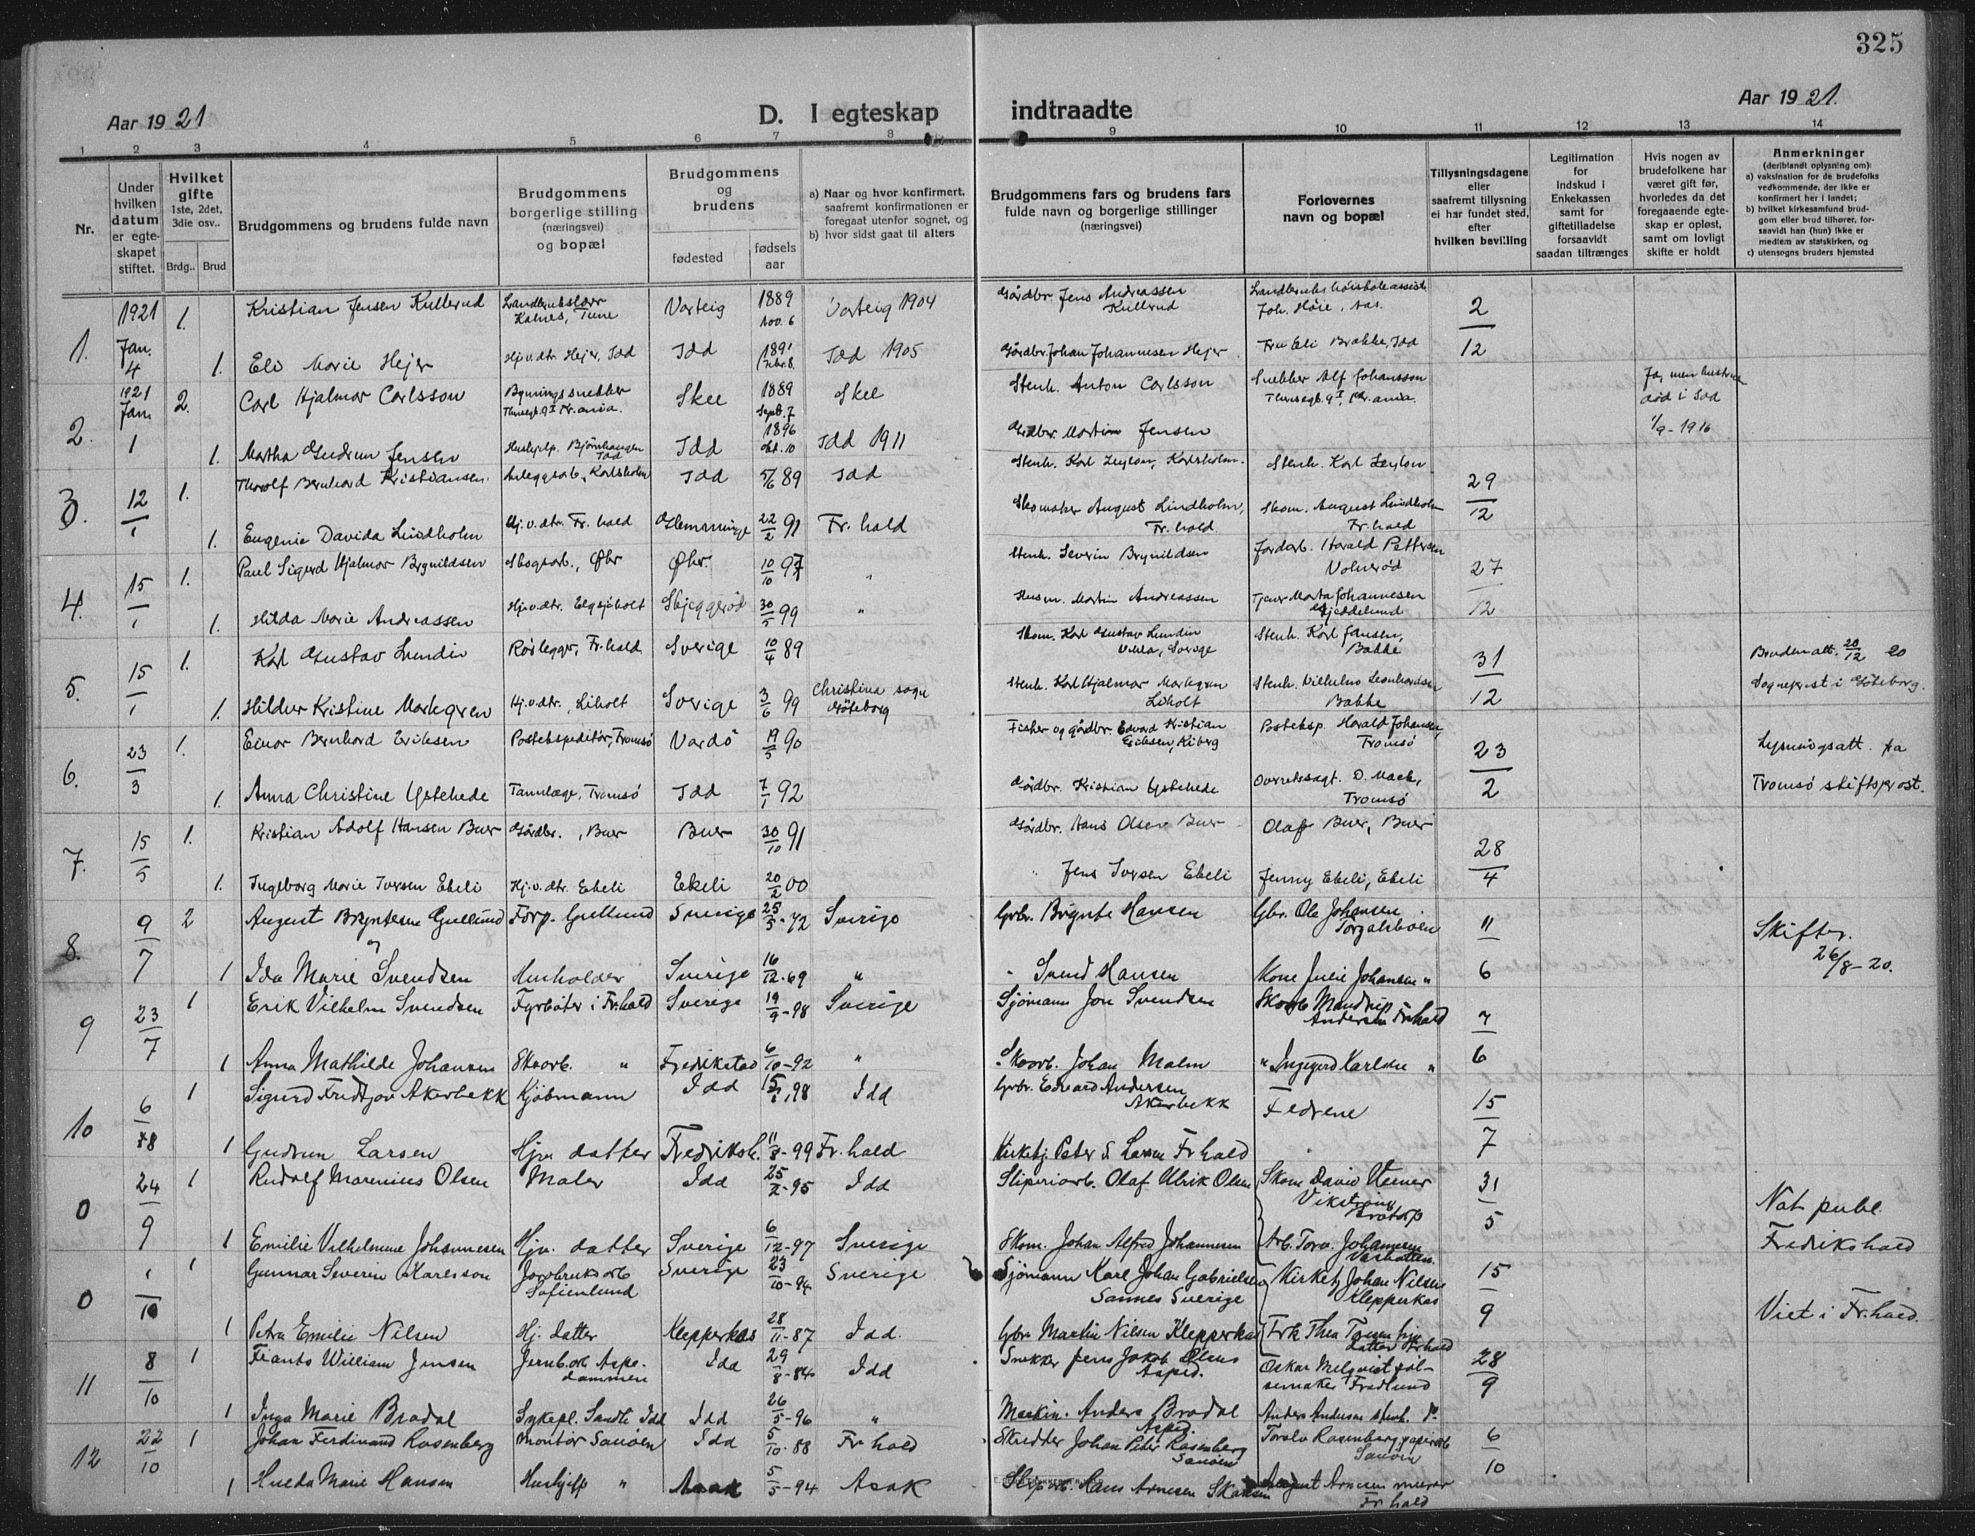 325
Aar 1921
D. I egteskap indtraadte
Aar 1921.
1 2 3 4 5 6 7 8 9 10 11 12 13 14
Nr.
Under hvilken datum er egteskapet stiftet.
Hvilket gifte 1ste, 2det, 3die osv..
Brdg.. Brud
Brudgommens og brudens fulde navn
Brudgommens borgerlige stilling (næringsvei) og bopæl
Brudgommens og brudens
fødested
fødselsaar
a) Naar og hvor konfirmert, saafremt konfirmationen er foregaat utenfor sognet, og
b) hvor sidst gaat til alters
Brudgommens fars og brudens fars fulde navn og borgerlige stillinger (næringsvei)
Forlovernes navn og bopæl
Tillysningsdagene eller saafremt tillysning ei har fundet sted, efter hvilken bevilling
Legitimation for indskud i Enkekassen samt for giftetilladelse forsaavidt saadan tiltrænges
Hvis nogen av brudefolkene har været gift før, hvorledes da det foregaaende egteskap er opløst, samt om lovligt skifte er holdt
Anmerkninger (deriblandt oplysning om):
a) vaksination for de brudefolks vedkommende, der ikke er konfirmert her i landet;
b) hvilket kirkesamfund brudgom eller brud tilhører, forsaavidt han (hun) ikke er medlem av statskirken, og
c) utensogns bruders hjemsted
1. 1921 Jan. 4 1. Kristian Jensen Kullerud Landbrukslærer Kalnes, Tune Varteig 1889 Nov. 6 Varteig 1904 Gårdbr. Jens Andreassen Kullerud Landbrukshøiskoleassist. Joh. Høie, Aas. 2/12
1. Eli Marie Hejer Hj.v.dtr. Hejer, Idd Idd 1891 Febr. 8. Idd 1905 Gårdbr. Johan Johannesen Hejer Fru Eli Brække, Idd
2. 1921 Jan. 1 2. Carl Hjalmar Carlsson Bygningssnekker Skee 1889 Sept. 7 Skee Stenh. Anton Carlsson Snekker Alf Johansson Ja, men hustrua død i Idd 1/9-1916
1. Martha Gudrun Jensen Hushjelp Bjørnhaugen Idd Idd 1896 Okt. 10 Idd 1911 Gårdbr. Martin Jensen
3. 12/1 1. Thoralf Bernhard Kristiansen. Anleggsarb., Karlsholm Idd 5/6 89 Idd Stenh. Karl Karlsholm Stenh. Karl 29/12
1. Eugenie Davida Lindholm Hj.v.dtr. Fr.hald Glemminge 22/2 91 Fr.hald Skomaker August Lindholm, Fr.hald Skom. August Lindholm Fr.hald
4. 15/1 1. Paul Sigerd Hjalmar Brynildsen Skogsarb., Øbr Øbr. 10/10 97 " Stenh. Severin Brynildsen Jordarb. Harald Pettersen 27/12
1. Hilda Marie Andreassen Hj.v.dtr. Elgsjøholt Skjeggerød 30/5 99 " Husm. Martin Andreassen Tjener Marta Johannesen Gjeddelund
5. 15/1 1. Karl Gustav Lundin Rørlegger, Fr.hald Sverige 10/4 89 Skom. Karl Gustav Lundin Sverige Stenh. Karl Jansen, Bakke 31/12 Brudenatt. 20/12 20
1. Hildur Kristine Markgren Hj.v.dtr., Liholt Sverige 3/6 99 Christina sogn Gøteborg Stenh. Karl Hjalmar Markgren Liholt Stenh. Vilhelm Leonhardsen Bakke Sogneprest i Gøteborg.
6. 23/3 1. Einar Bernhard Eriksen Postekspeditør, Tromsø Vardø 19/5 90 Fisker og gårdbr. Edvard Kristian Eriksen, Kiberg Posteksp. Harald Johansen, Tromsø 23/2 Lysningsatt. fra
1. Anna Christine Ystehede Tannlæge, Tromsø Idd 7/1 92 Gårdbr. Kristian Ystehede Overretssagf. D. Mack, Tromsø Tromsø stiftsprost.
7. 15/5 1. Kristian Adolf Hansen Buer Gårdbr., Buer Buer 30/10 91 Gårdbr. Hans Olsen Buer Olaf Buer, Buer 28/4
1. Ingeborg Marie Iversen Ekeli Hj.v.dtr. Ekeli Ekeli 20/2 00 " Jens Iversen Ekeli Jenny Ekeli, Ekeli
8. 9/7 2 August Bryntesen Gullund Forp. Gullund Sverige 25/3-72 Sverige Grbr. Brynte Hansen Gbr. Ole Johansen 11/6 Skifter. 26/8-20.
1 Ida Marie Svendsen Husholder Sverige 16/12-69 " " Svend Hansen Kone Julie Johansen "
9 23/7 1 Erik Vilhelm Svendsen Fyrbøter i Fr.hald Sverige 19/9-98 Sverige Sjømann Jon Svendsen Skoarb. Mandrup Andersen Fr.hald 7/6
1 Anna Mathilde Johansen Skoarb. " Fredrikstad 6/10-92 " Skoarb. Johan Malm " Ingegerd Karlsen "
10 6/8 1 Sigurd Fredtjov Akerbekk Kjøbmann Idd 98 Idd Grbr. Edvard Andersen Akerbekk Fedrene 15/7
1 Gudrun Larsen Hjv. datter Fredriksh. 11/8-99 Fr.hald Kirketj. Peter S. Larsen Fr.hald
0 24/9 1 Rudolf Marenius Olsen Maler Idd 25/2-95 Idd Sliperiarb. Olaf Ulrik Olsen Skom David Verner Vikstrøm 31/5 Nat. publ.
1 Emilie Vilhelmine Johannesen Hjv. datter Sverige 6/12-97 Sverige Skom. Johan Alfred Johannesen Arb. Torv. Johannesen Fredrikshald
0 1/10 1 Gunnar Severin Karlsson Jordbruksarb Sofienlund Sverige 23/10-94 Sverige Sjømann Karl Johan Gabrielsen Sannes Sverige Kirketj Johan Nilsen Klepperkas 15/9
1 Petra Emilie Nilsen Hj. datter Klepperkas 28/11-87 Idd. Gbr. Martin Nilsen Klepperkas Frk Thea datter Fr.hald Viet i Fr.hald.
11 8/10 1 Frants William Jensen Jernb.arb Aspedammen Idd 29/8-84 Idd Snekker Jens Jakob Olsen Asped. Oskar Melqvist pølsemaker Fredlund 28/9
1 Inga Marie Bradal Sykepl. Idd Idd 26/5-96 " Maskin. Anders Bradal Asped. Anders Andersen stenh.
12 22/10 1 Johan Ferdinand Rosenberg montør Sanøen Idd 5/10-88 Fr.hald Skredder Johan Peter Rosenberg Sanøen Toralv Rosenberg papirarb Sanøen 6/10
1 Hulda Marie Hansen Hushjelp " Asak 5/5-94 Asak Sliparb. Hans Arnesen Skansen August Arnesen murer Fr.hald